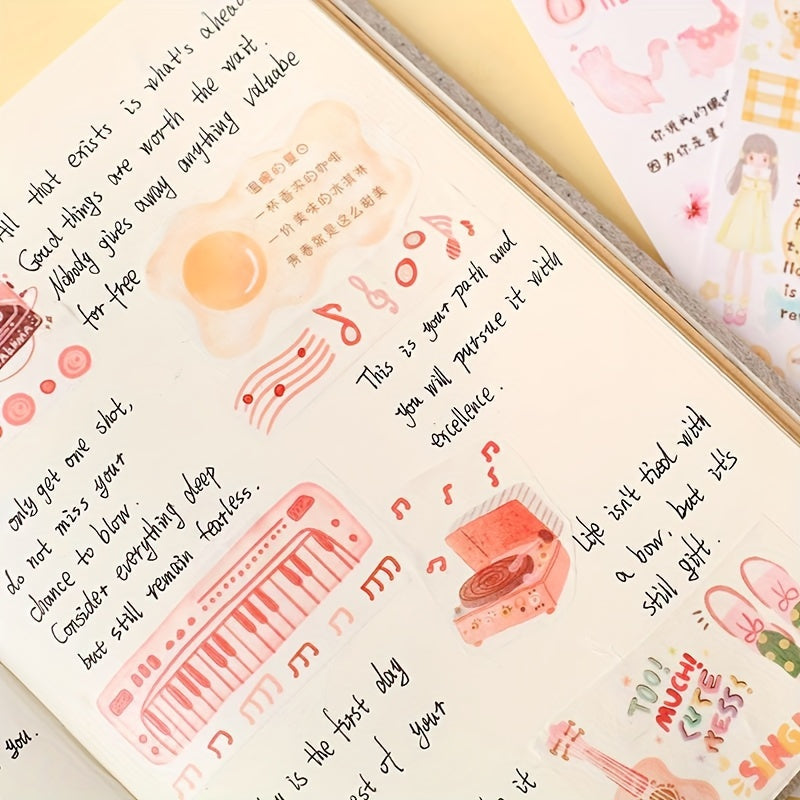 All that exists is what's ahead
Goud things are worth the wait.
Nobody gives away anything valuabe
for free
温暖的夏日
一杯香浓的咖啡
一份美味的冰淇淋
青春就是这么甜美
This is your path and
you will pursue it with
excellence.
only get one shot,
do not miss your
chance to blow.
Consider everything deep
but still remain fearless.
Life isn't tied with
a bow. but it's
still gift.
is the first day
of your
it
you.
TOO!
MUCH!
CUTE
NESS.
SING
你说我的眼
因为你是星
is